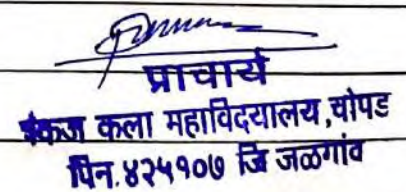 प्राचार्य
पंकज कला महाविदयालय,चोपड
पिन.४२५१०७ जि जळगांव